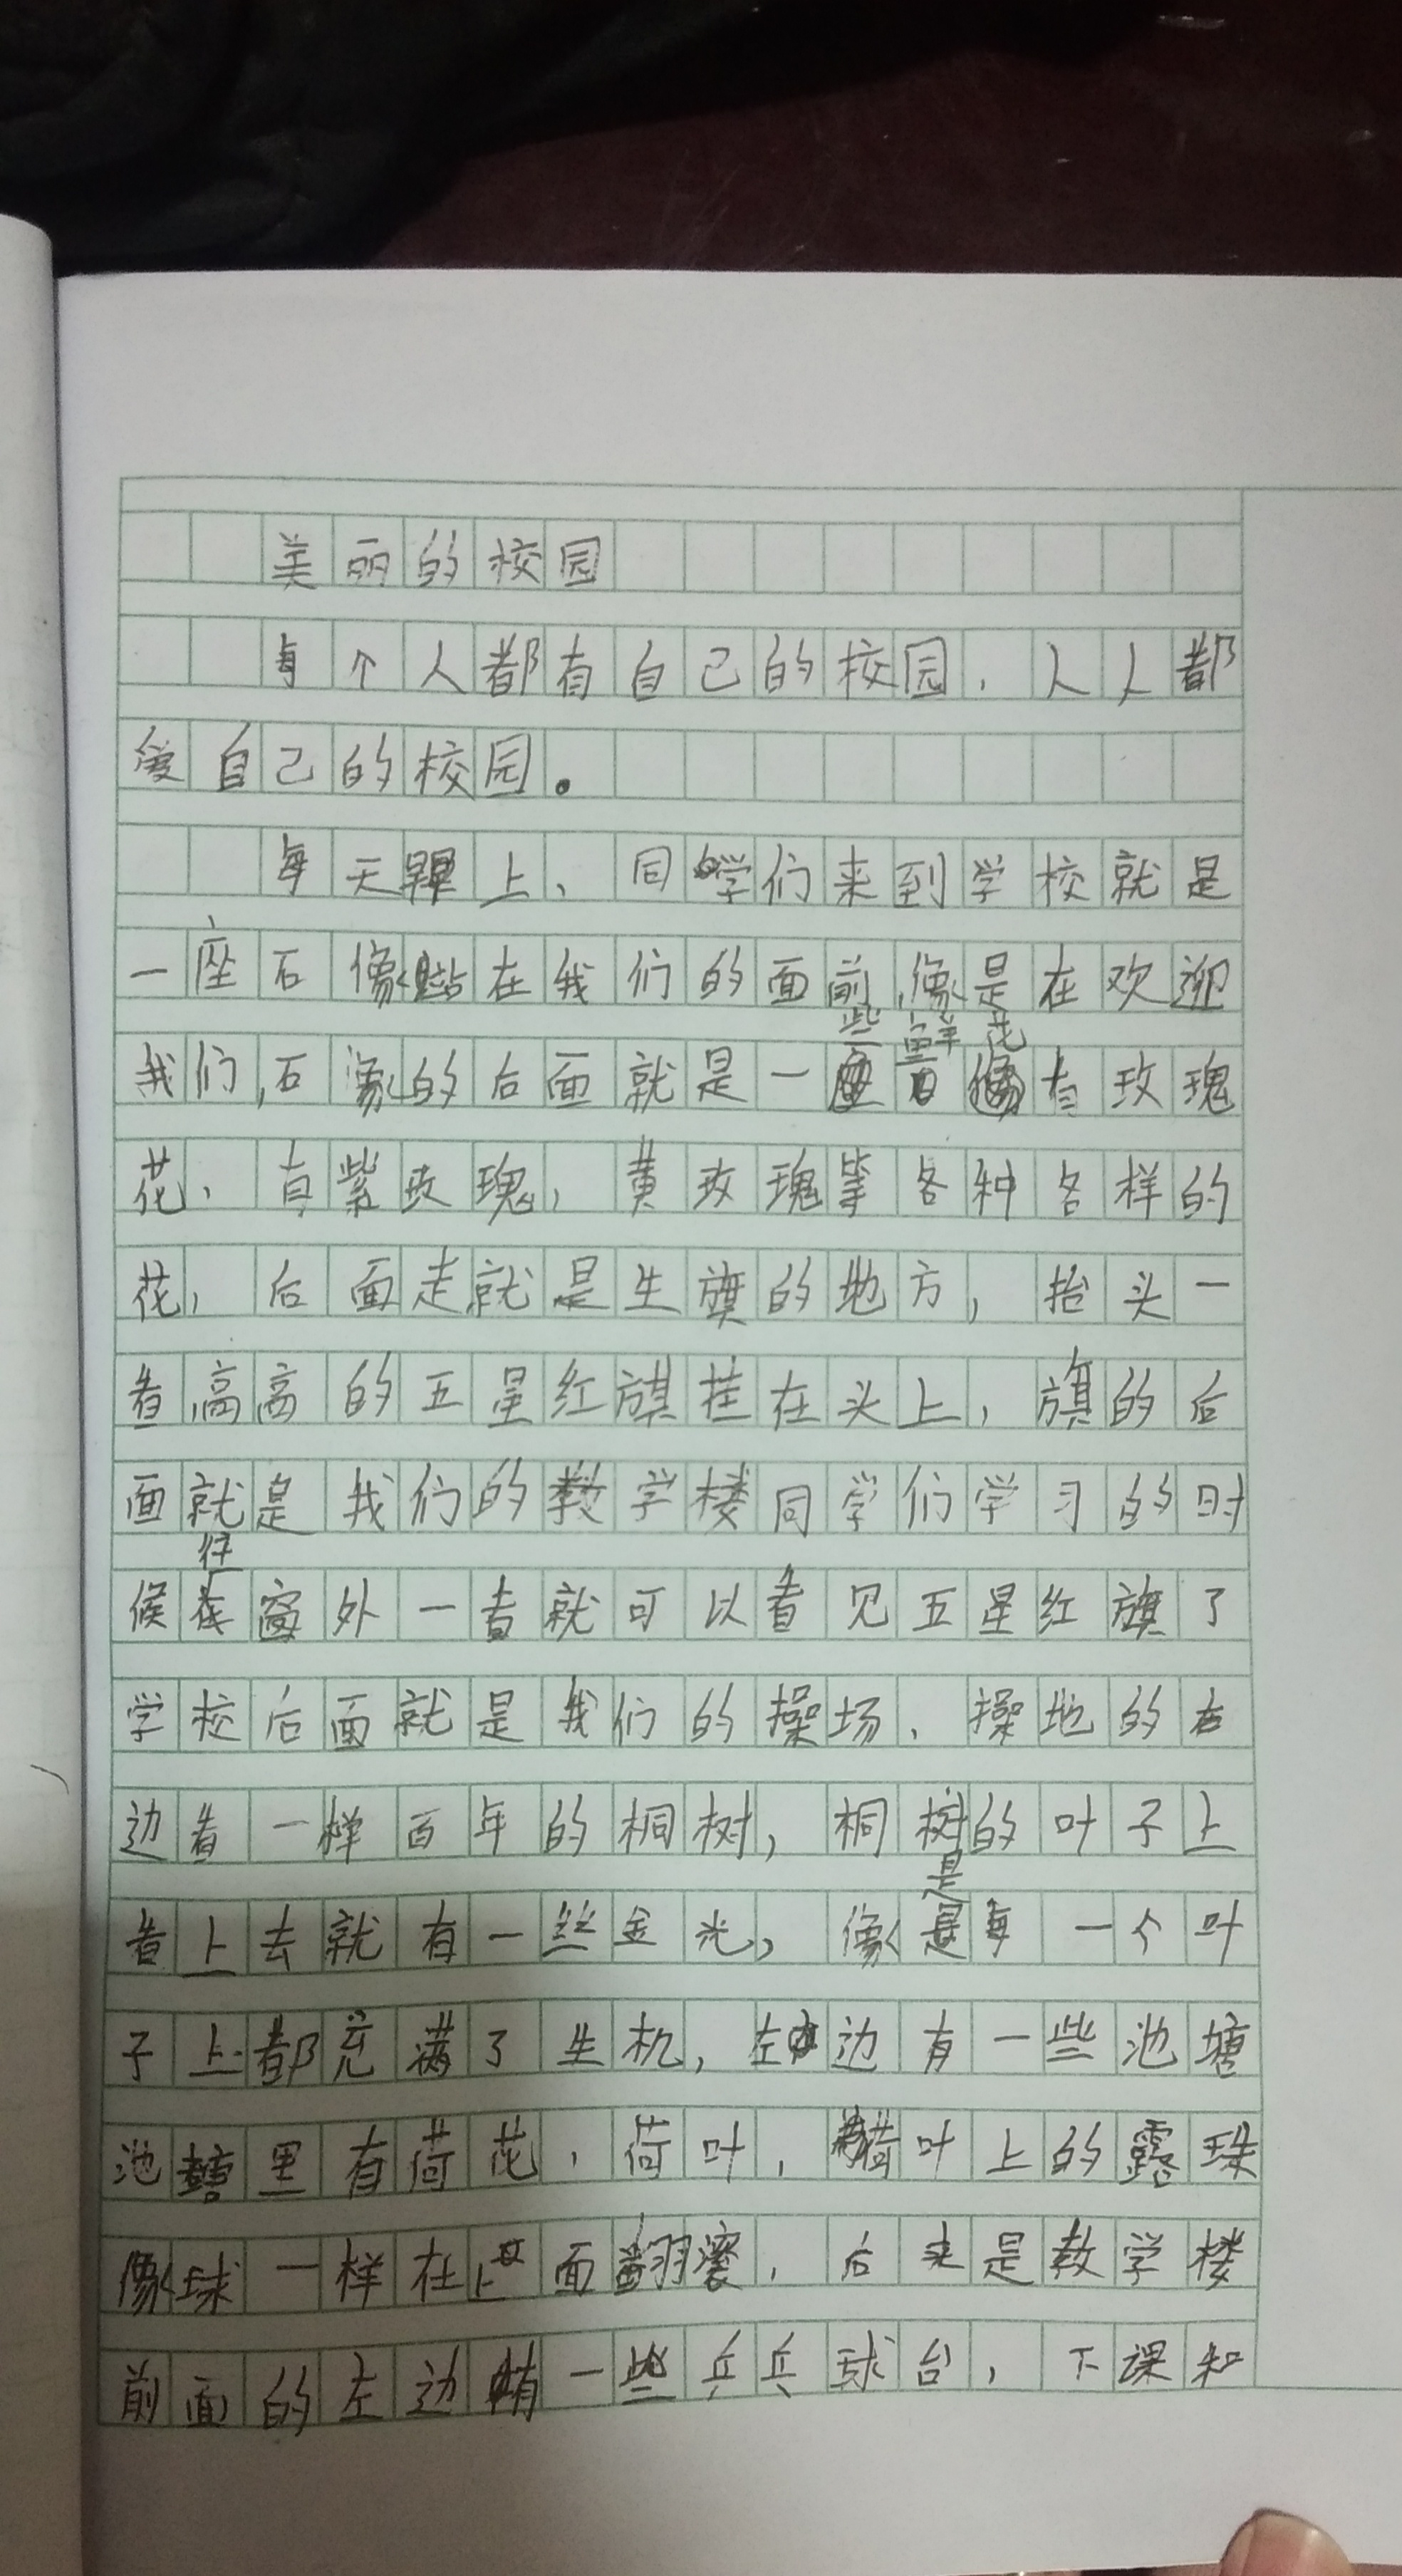 美丽的校园
每个人都有自己的校园，人人都
爱自己的校园。
每天早上，同学们来到学校就是
一座石像站在我们的面前，像是在欢迎
我们，石像的后面就是一些鲜花有玫瑰
花，有紫玫瑰，黄玫瑰等各种各样的
花，后面走就是生旗的地方，抬头一
看，高高的五星红旗挂在头上，旗的后
面就是我们的教学楼同学们学习的时
候往窗外一看就可以看见五星红旗了
学校后面就是我们的操场，操地的右
边看一样百年的桐树，桐树的叶子上
看上去就有一丝金光，像是每一个叶
子上都充满了生机，左边有一些池塘
池塘里有荷花，荷叶，荷叶上的露珠
像球一样在上面翻滚，后来是教学楼
前面的左边有一些乒乓球台，下课和